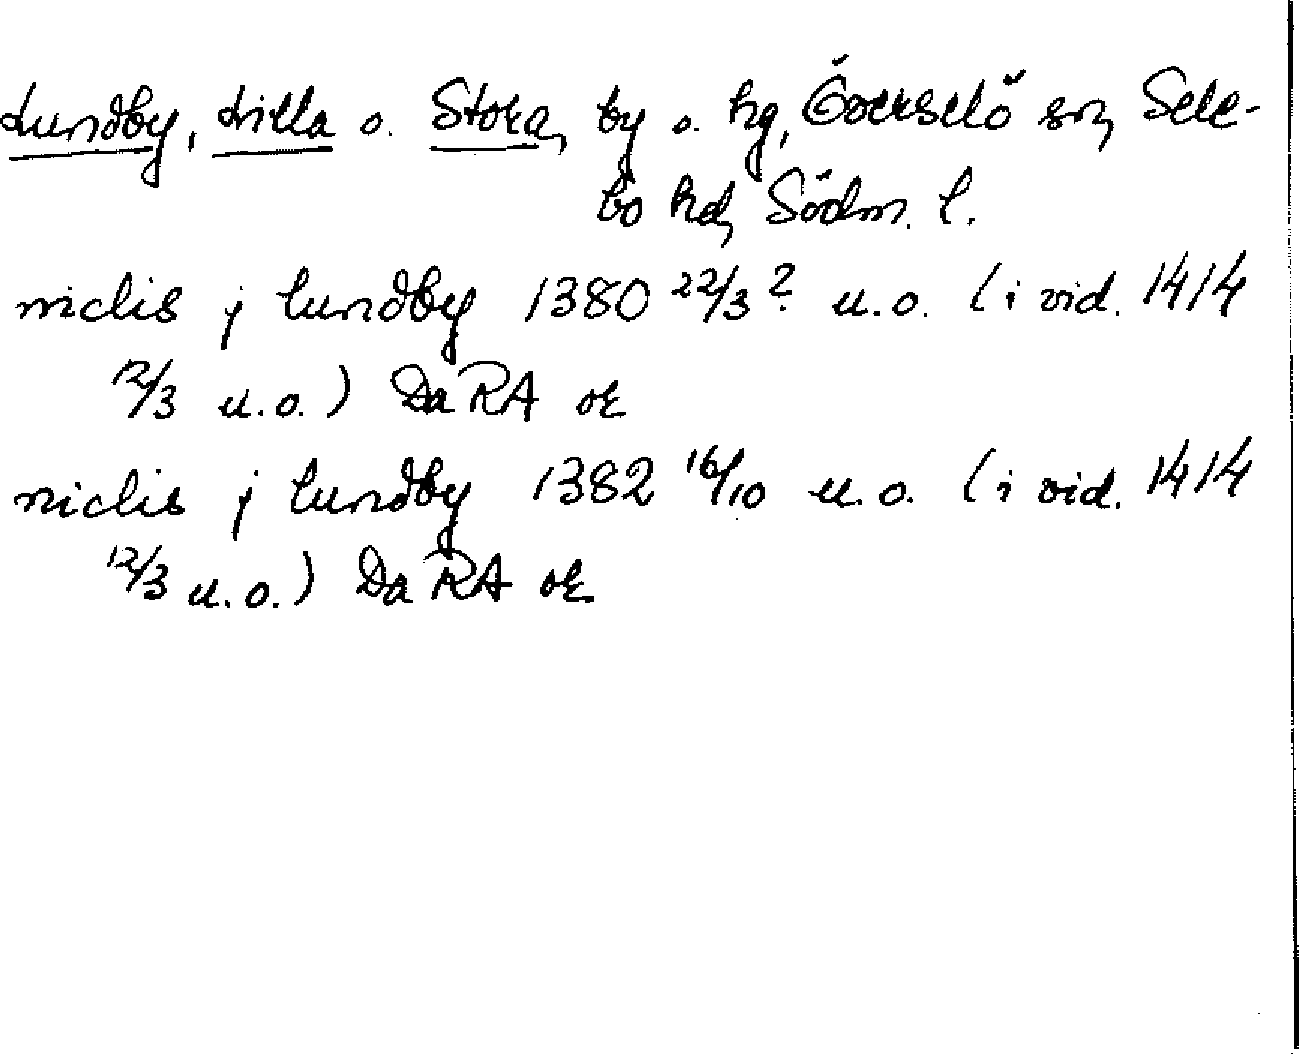 Lundby, Lilla o. Stora, by o. hg, Överselö sn, Sele-
bo hd, Södm. l.
niclis j lundby 1380 22/3? u.o. (i vid. 1414
12/3 u.o.) Da RA or
niclis j lundby 1382 16/10 u.o. (i vid. 1414
12/3 u.o.) Da RA or